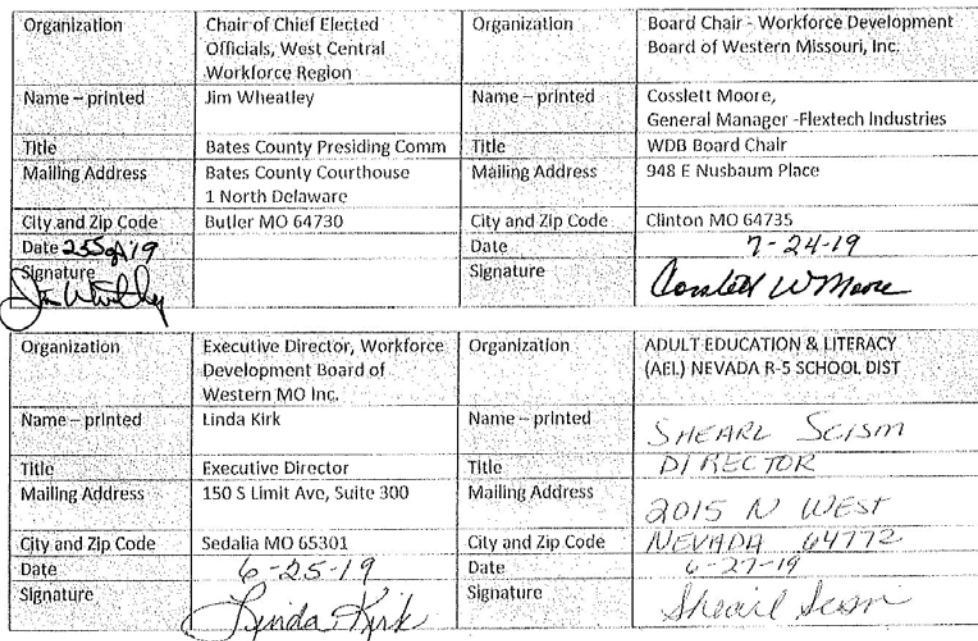 Organization
Chair of Chief Elected
Officials, West Central
Workforce Region
Organization
Board Chair - Workforce Development
Board of Western Missouri, Inc.
Name – printed
Jim Wheatley
Name – printed
Cosslett Moore,
General Manager -Flextech Industries
Title
Bates County Presiding Comm
Title
WDB Board Chair
Mailing Address
Bates County Courthouse
1 North Delaware
Mailing Address
948 E Nusbaum Place
City and Zip Code
Butler MO 64730
City and Zip Code
Clinton MO 64735
Date
Date
7-24-19
Signature
Jim Wheatley
Signature
Cosslett W Moore
Organization
Executive Director, Workforce
Development Board of
Western MO Inc.
Organization
ADULT EDUCATION & LITERACY
(AEL) NEVADA R-5 SCHOOL DIST
Name – printed
Linda Kirk
Name – printed
SHEARL SCISM
Title
Executive Director
Title
DIRECTOR
Mailing Address
150 S Limit Ave, Suite 300
Mailing Address
2015 N WEST
City and Zip Code
Sedalia MO 65301
City and Zip Code
NEVADA 64772
Date
6-25-19
Date
6-27-19
Signature
Linda Kirk
Signature
Shearl Scism